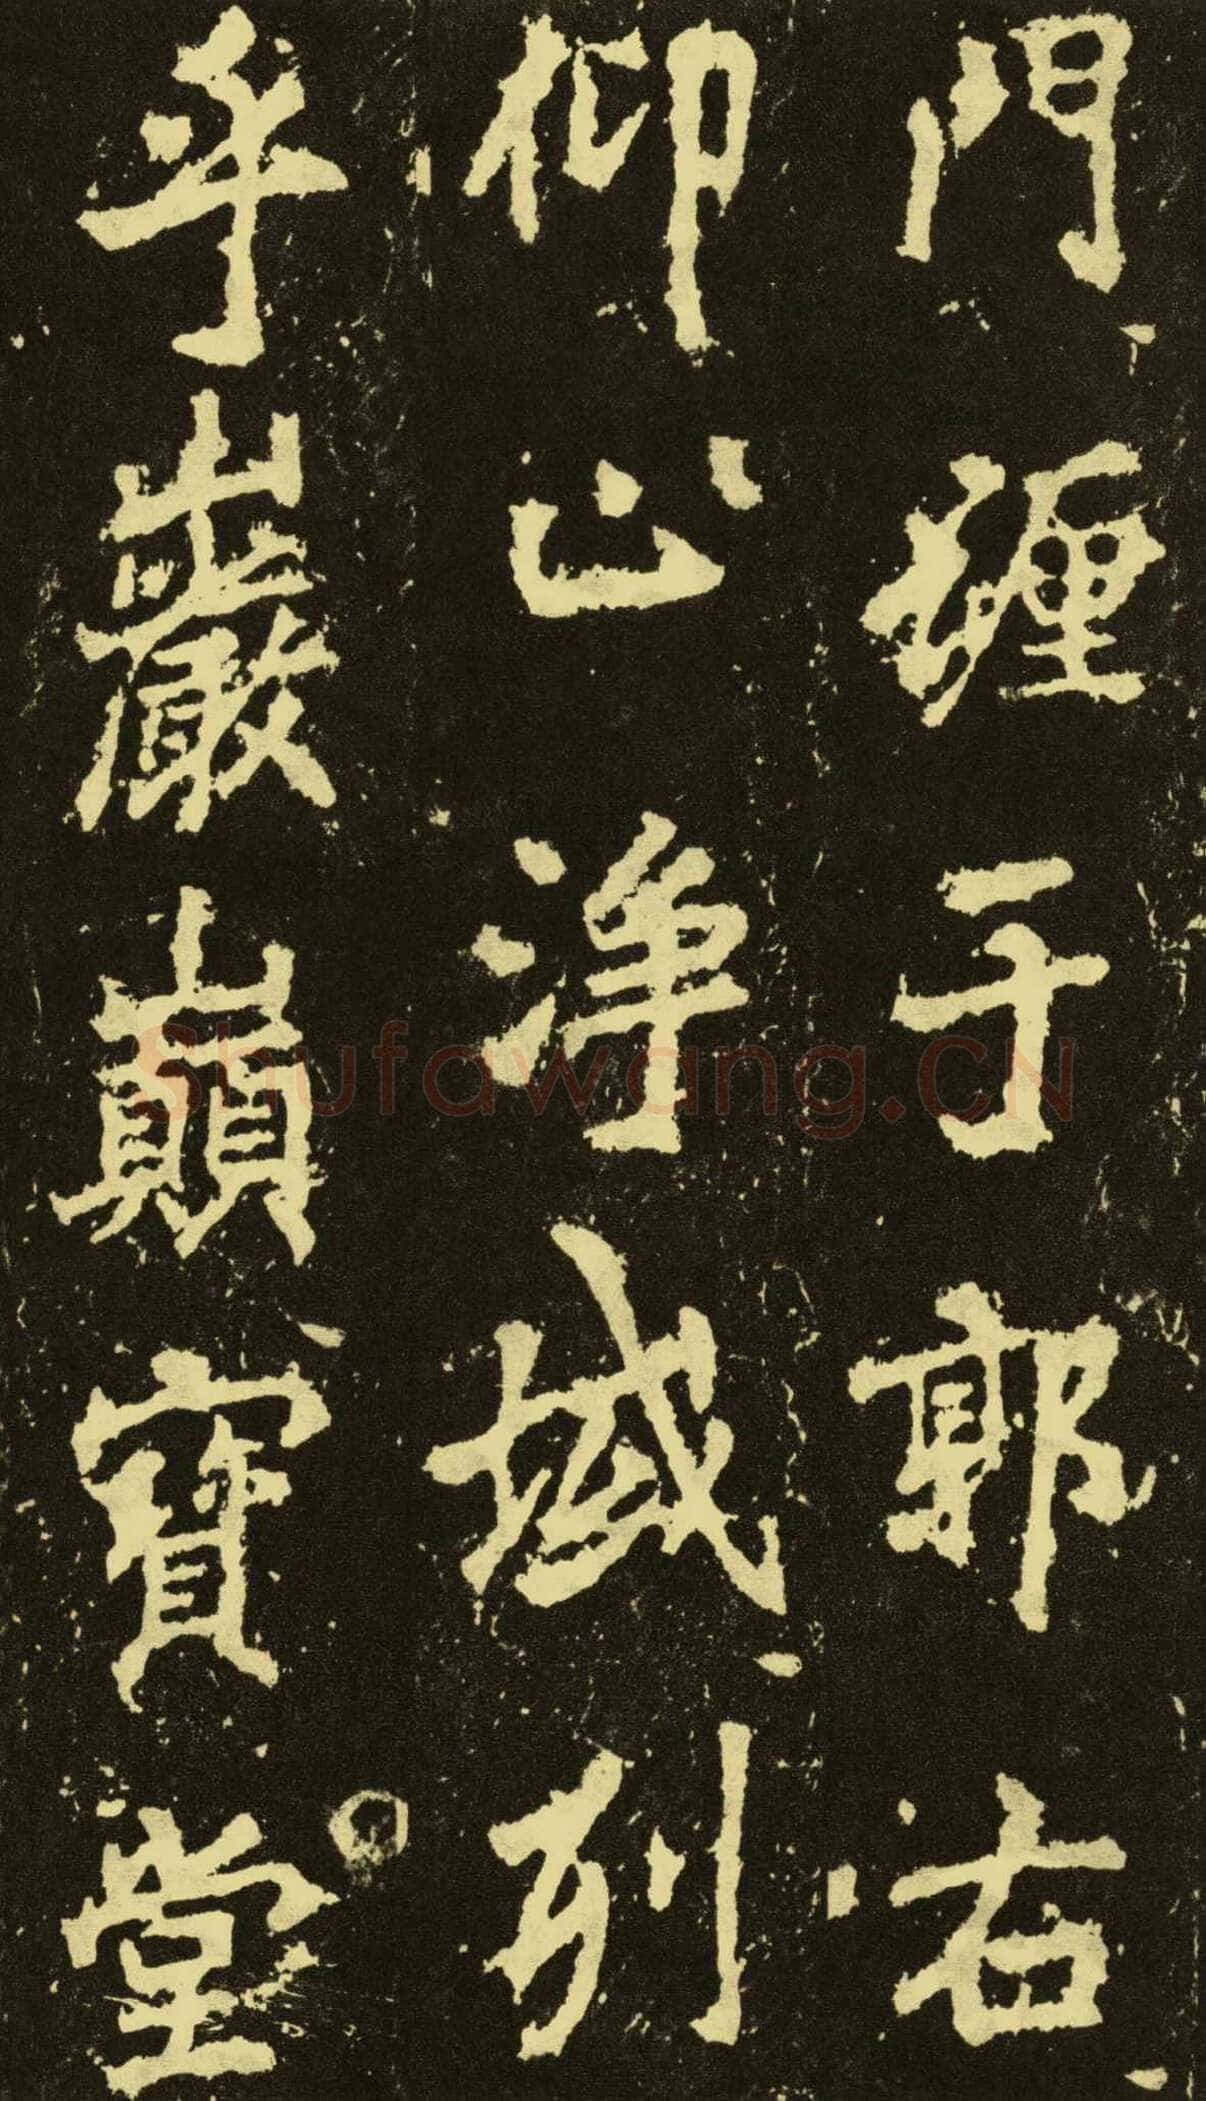 門纏于郭右
仰止淨域列
乎巖巔寶堂
Shufawang.CN